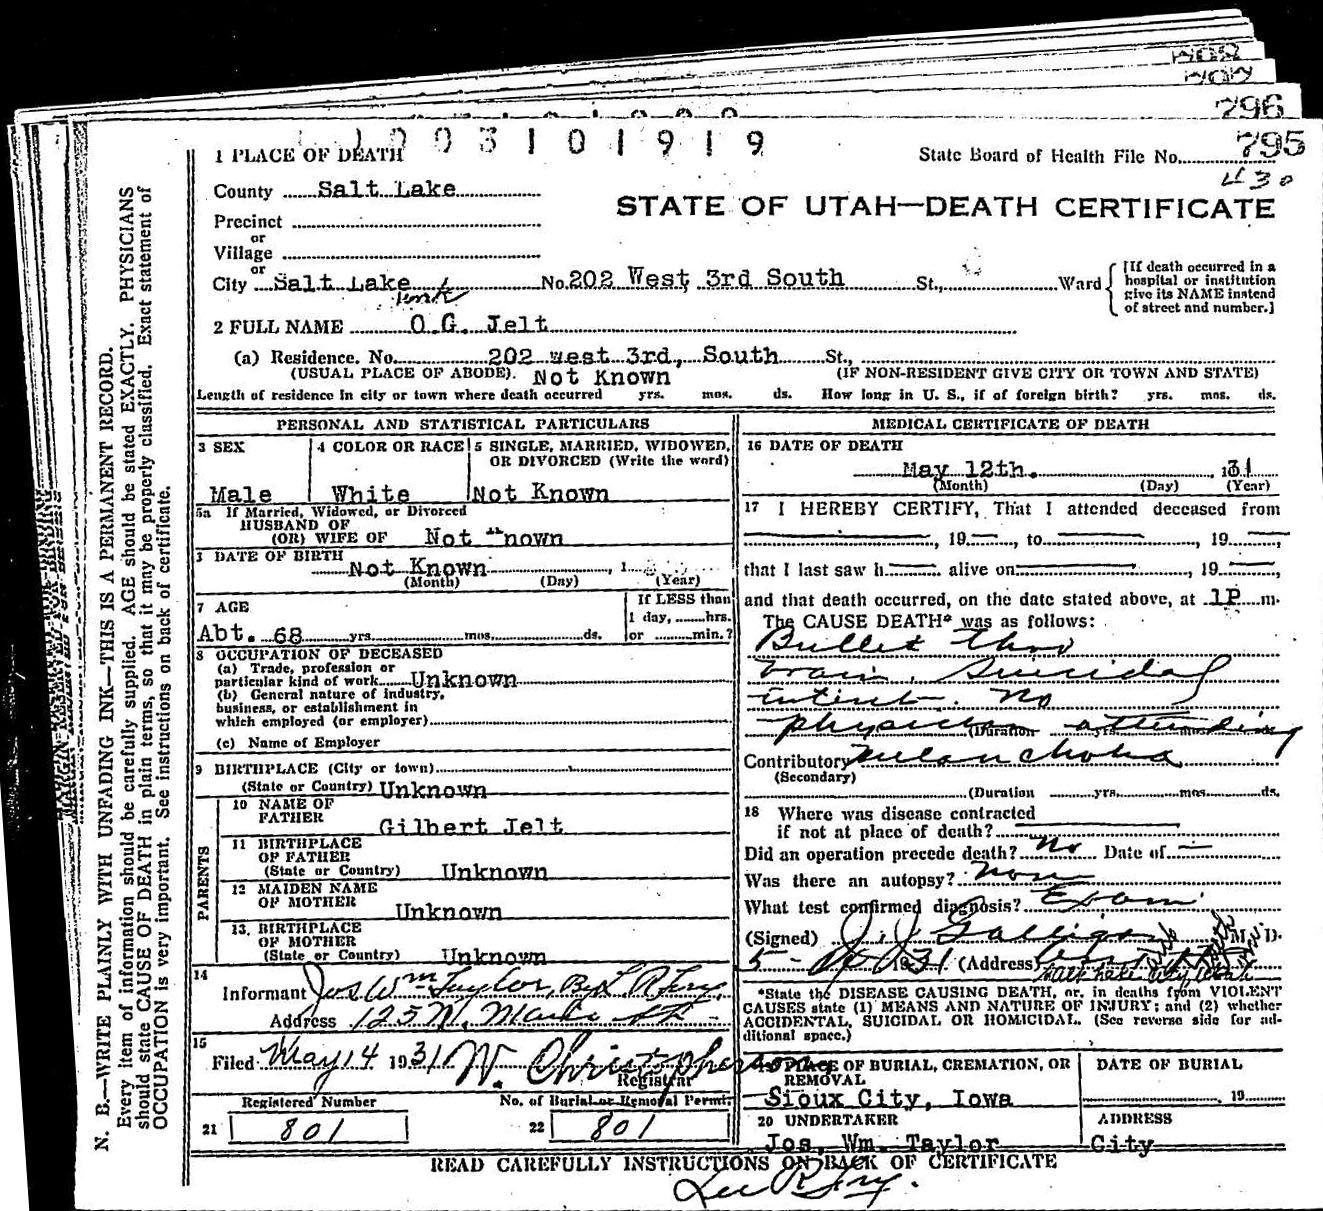 796
795
430
1003101919
1 PLACE OF DEATH
State Board of Health File No.
County Salt Lake
STATE OF UTAH—DEATH CERTIFICATE
Precinct
or
Village
or
City Salt Lake No. 202 West 3rd South St., Ward
[If death occurred in a hospital or institution give its NAME instead of street and number.]
2 FULL NAME O.G. Jelt
(a) Residence. No. 202 west 3rd, South St.,
(USUAL PLACE OF ABODE). Not Known (IF NON-RESIDENT GIVE CITY OR TOWN AND STATE)
Length of residence in city or town where death occurred yrs. mos. ds. How long in U. S., if of foreign birth? yrs. mos. ds.
PERSONAL AND STATISTICAL PARTICULARS
3 SEX
Male
4 COLOR OR RACE
White
5 SINGLE, MARRIED, WIDOWED, OR DIVORCED (Write the word)
Not Known
5a If Married, Widowed, or Divorced
HUSBAND OF
(OR) WIFE OF Not nown
DATE OF BIRTH
Not Known , 1
(Month) (Day) (Year)
7 AGE
Abt. 68 yrs. mos. ds.
If LESS than
1 day, hrs.
or min.?
8 OCCUPATION OF DECEASED
(a) Trade, profession or
particular kind of work Unknown
(b) General nature of industry,
business, or establishment in
which employed (or employer)
(c) Name of Employer
9 BIRTHPLACE (City or town)
(State or Country) Unknown
PARENTS
10 NAME OF
FATHER Gilbert Jelt
11 BIRTHPLACE
OF FATHER
(State or Country) Unknown
12 MAIDEN NAME
OF MOTHER
Unknown
13. BIRTHPLACE
OF MOTHER
(State or Country) Unknown
14
Informant Jos Wm Taylor, By L. R. Fry.
Address 125 N. Main St-
15
Filed May 14 1931 W. Christopherson
Registrar
Registered Number
21 801
No. of Burial or Removal Permit.
22 801
MEDICAL CERTIFICATE OF DEATH
16 DATE OF DEATH
May 12th. 1931
(Month) (Day) (Year)
17 I HEREBY CERTIFY, That I attended deceased from
, 19 , to , 19 ,
that I last saw h alive on , 19 ,
and that death occurred, on the date stated above, at 1P m.
The CAUSE DEATH* was as follows:
Bullet thro
brain. Suicidal
intent. No
physician attending
(Duration yrs.
Contributory Melancholia
(Secondary)
(Duration yrs. mos. ds.
18 Where was disease contracted
if not at place of death?
Did an operation precede death? No Date of —
Was there an autopsy? None
What test confirmed diagnosis? Exam
(Signed) J. J. Galligan M. D.
5- 1931 (Address)
Salt Lake City Utah
*State the DISEASE CAUSING DEATH, or, in deaths from VIOLENT
CAUSES state (1) MEANS AND NATURE OF INJURY; and (2) whether
ACCIDENTAL, SUICIDAL OR HOMICIDAL. (See reverse side for ad-
ditional space.)
19 PLACE OF BURIAL, CREMATION, OR
REMOVAL
Sioux City, Iowa
DATE OF BURIAL
, 19
20 UNDERTAKER
Jos, Wm. Taylor
ADDRESS
City
READ CAREFULLY INSTRUCTIONS ON BACK OF CERTIFICATE
Lee R Fry.
N. B.—WRITE PLAINLY WITH UNFADING INK—THIS IS A PERMANENT RECORD.
Every item of information should be carefully supplied. AGE should be stated EXACTLY. PHYSICIANS
should state CAUSE OF DEATH in plain terms, so that it may be properly classified. Exact statement of
OCCUPATION is very important. See instructions on back of certificate.